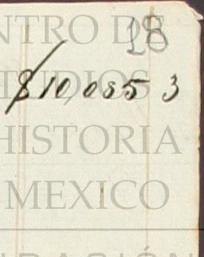 NTRO DE
18
TUDIOS
$10,085 3
HISTORIA
MEXICO